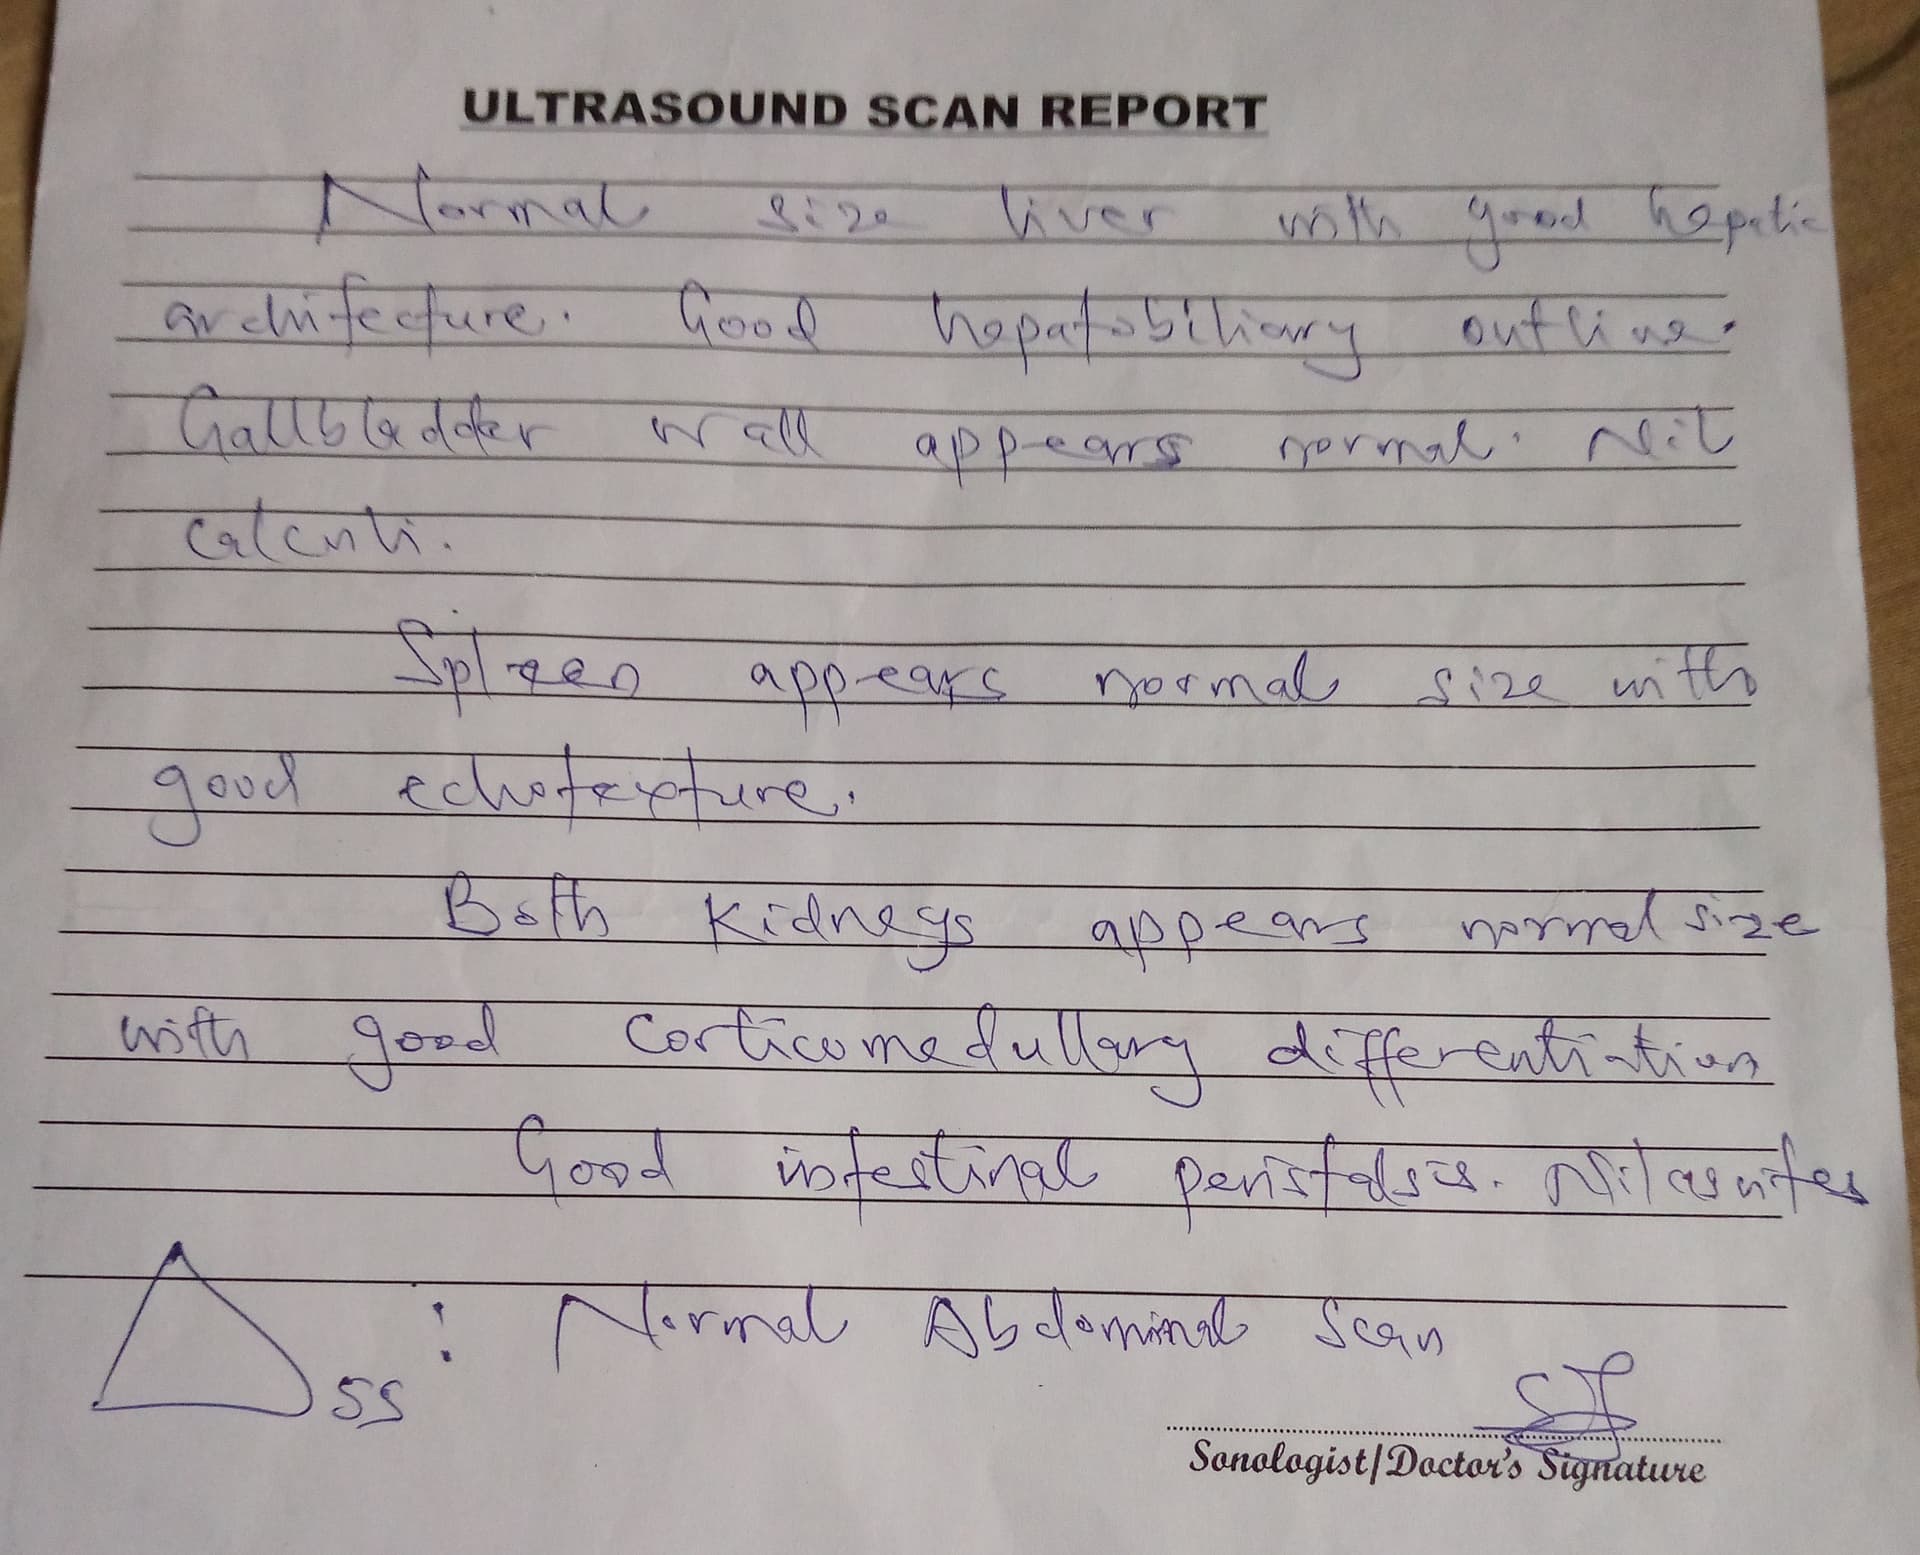 ULTRASOUND SCAN REPORT
Normal size liver with good hepatic
architecture. Good hepatobiliary outline.
Gallbladder wall appears normal. Nil
calculi.
Spleen appears normal size with
good echotexture.
Both kidneys appears normal size
with good corticomedullary differentiation
Good intestinal peristalsis. Nil ascites
△ss : Normal Abdominal Scan
Sonologist/Doctor's Signature